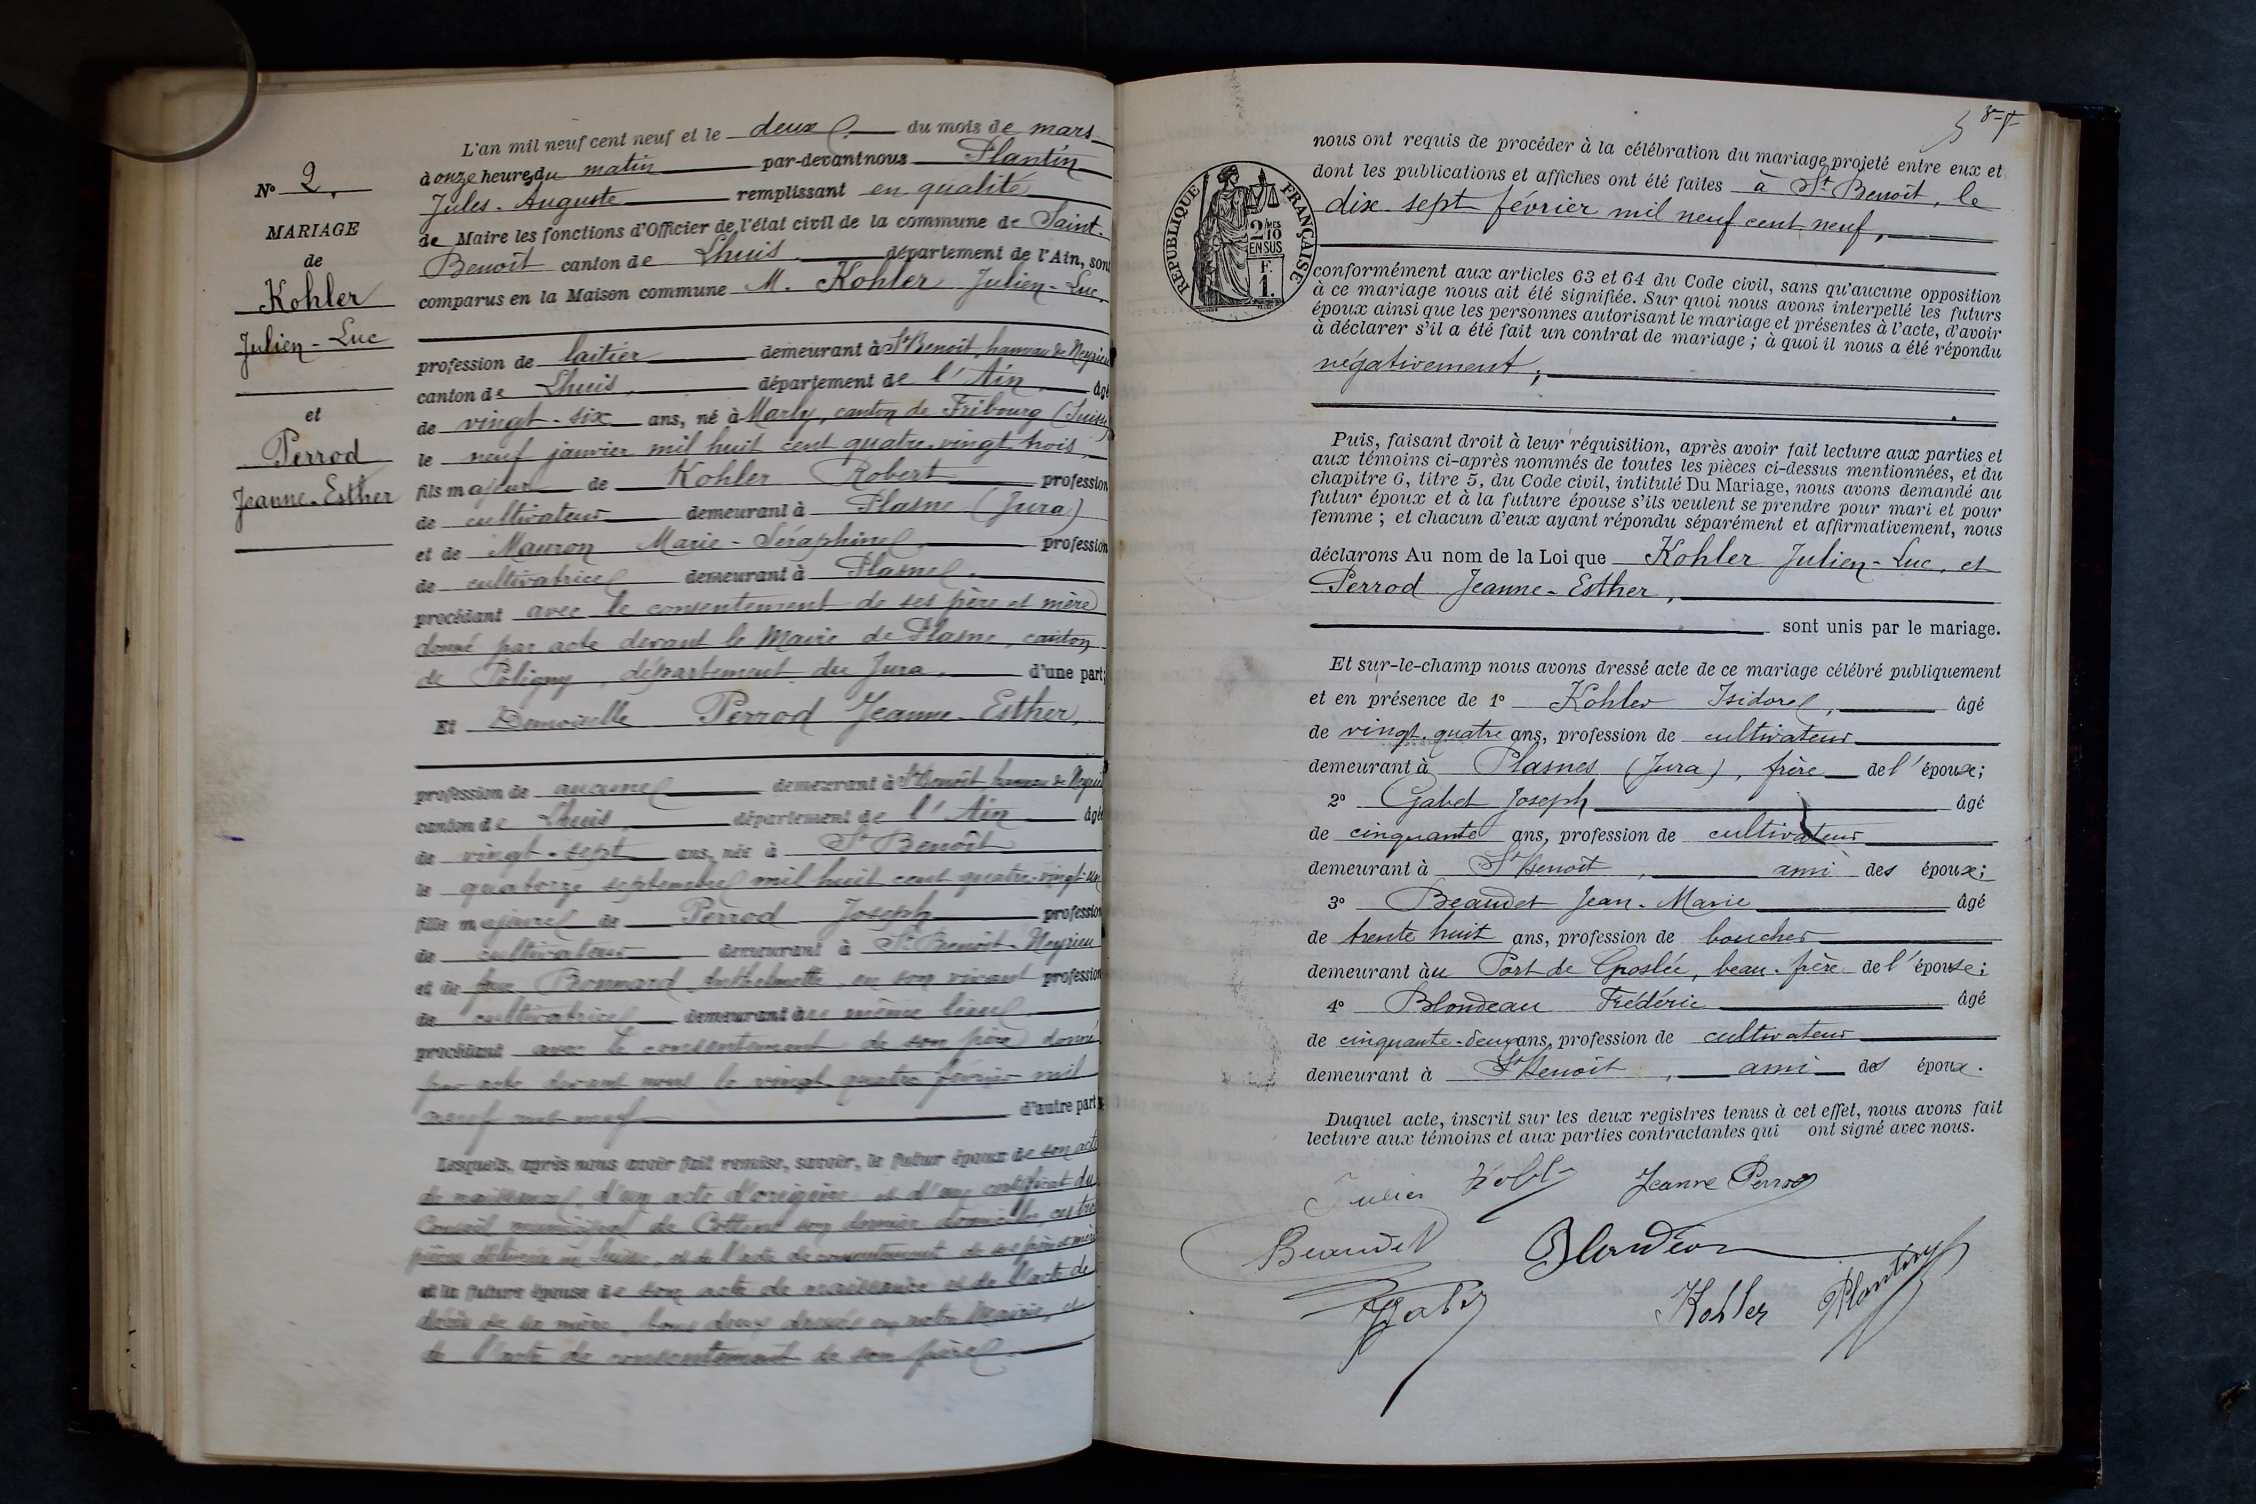 L'an mil neuf cent neuf et le deux du mois de mars
à onze heures du matin par-devant nous Plantin
Jules-Auguste remplissant en qualité
de Maire les fonctions d'Officier de l'état civil de la commune de Saint-
Benoît canton de Lhuis département de l'Ain, sont
comparus en la Maison commune M. Kohler Julien-Luc,
N° 2.
MARIAGE
de
Kohler
Julien-Luc
et
Perrod
Jeanne-Esther
profession de laitier demeurant à St Benoît, hameau de Neyrieu
canton de Lhuis, département de l'Ain, âgé
de vingt-six ans, né à Marly, canton de Fribourg (Suisse)
le neuf janvier mil huit cent quatre-vingt trois,
fils majeur de Kohler Robert profession
de cultivateur demeurant à Plasne (Jura)
et de Mauron Marie-Séraphine profession
de cultivatrice demeurant à Plasne,
procédant avec le consentement de ses père et mère
donné par acte devant le Maire de Plasne, canton
de Poligny, département du Jura, d'une part;
Et Demoiselle Perrod Jeanne-Esther,
profession de aucune demeurant à St Benoît hameau de Neyrieu
canton de Lhuis, département de l'Ain âgée
de vingt-sept ans, née à St Benoît
le quatorze septembre mil huit cent quatre-vingt-un
fille majeure de Perrod Joseph profession
de cultivateur demeurant à St Benoît-Neyrieu
et de feue Bonnard Anthelmette, en son vivant profession
de cultivatrice demeurant au même lieu
procédant avec le consentement de son père donné
par acte devant nous le vingt-quatre février mil
neuf cent neuf d'autre part
Lesquels, après nous avoir fait remise, savoir, le futur époux de son acte
de naissance, d'un acte d'origine et d'un certificat du
Conseil municipal de Cottens son dernier domicile, ces trois
pièces délivrées en Suisse, et de l'acte de consentement de ses père et mère
et la future épouse de son acte de naissance et de l'acte de
décès de sa mère, tous deux dressés en notre Mairie, et
de l'acte de consentement de son père
nous ont requis de procéder à la célébration du mariage projeté entre eux et
dont les publications et affiches ont été faites à St Benoît, le
dix-sept février mil neuf cent neuf,
RÉPUBLIQUE FRANÇAISE
2/10 MES
EN SUS
F.
1.
conformément aux articles 63 et 64 du Code civil, sans qu'aucune opposition
à ce mariage nous ait été signifiée. Sur quoi nous avons interpellé les futurs
époux ainsi que les personnes autorisant le mariage et présentes à l'acte, d'avoir
à déclarer s'il a été fait un contrat de mariage; à quoi il nous a été répondu
négativement;
Puis, faisant droit à leur réquisition, après avoir fait lecture aux parties et
aux témoins ci-après nommés de toutes les pièces ci-dessus mentionnées, et du
chapitre 6, titre 5, du Code civil, intitulé Du Mariage, nous avons demandé au
futur époux et à la future épouse s'ils veulent se prendre pour mari et pour
femme; et chacun d'eux ayant répondu séparément et affirmativement, nous
déclarons Au nom de la Loi que Kohler Julien-Luc, et
Perrod Jeanne-Esther,
sont unis par le mariage.
Et sur-le-champ nous avons dressé acte de ce mariage célébré publiquement
et en présence de 1° Kohler Isidore, âgé
de vingt-quatre ans, profession de cultivateur
demeurant à Plasnes (Jura), frère de l'époux;
2° Gabet Joseph âgé
de cinquante ans, profession de cultivateur
demeurant à St Benoît, ami des époux;
3° Beaudet Jean-Marie âgé
de trente huit ans, profession de boucher
demeurant au Port de Groslée, beau-frère de l'épouse;
4° Blondeau Frédéric âgé
de cinquante-deux ans, profession de cultivateur
demeurant à St Benoit, ami des époux.
Duquel acte, inscrit sur les deux registres tenus à cet effet, nous avons fait
lecture aux témoins et aux parties contractantes qui ont signé avec nous.
Julien Kohler Jeanne Perrod
Beaudet Blondeau
Gabet Kohler Plantin